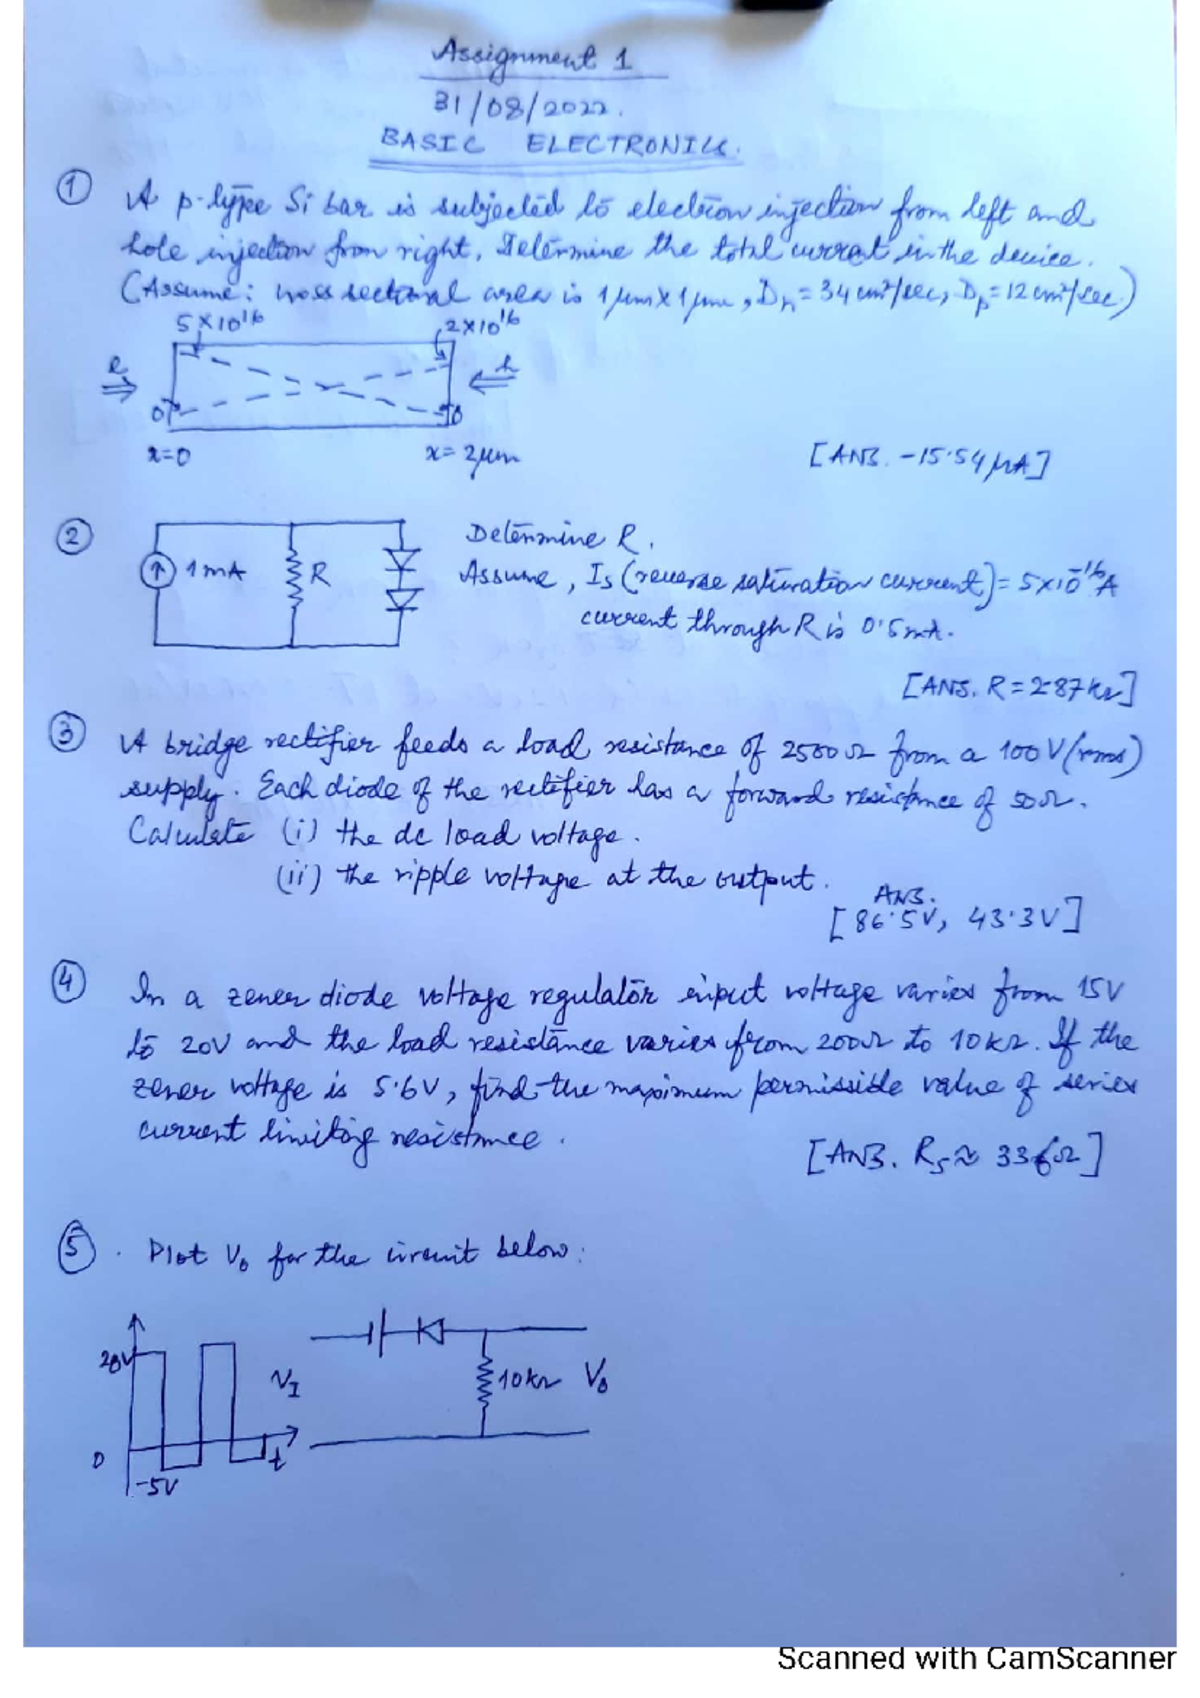 Assignment 1
31/08/2022.
BASIC ELECTRONICS.
① A p-type Si bar is subjected to electron injection from left and
hole injection from right. Determine the total current in the device.
(Assume: cross sectional area is 1μm X 1μm, Dn = 34 cm²/sec, Dp = 12 cm²/sec.)
5 X 10¹⁶ 2 X 10¹⁶
e h
0 0
x=0 x= 2μm
[ANS. -15.54 μA]
② Determine R.
1mA R Assume, Is (reverse saturation current) = 5 x 10⁻¹⁶ A
current through R is 0.5mA.
[ANS. R = 2.87 kΩ]
③ A bridge rectifier feeds a load resistance of 2500Ω from a 100 V (rms)
supply. Each diode of the rectifier has a forward resistance of 50Ω.
Calculate (i) the dc load voltage.
(ii) the ripple voltage at the output.
ANS.
[86.5V, 43.3V]
④ In a zener diode voltage regulator input voltage varies from 15V
to 20V and the load resistance varies from 200Ω to 10kΩ. If the
zener voltage is 5.6V, find the maximum permissible value of series
current limiting resistance.
[ANS. Rs ≈ 336Ω]
⑤ . Plot V₀ for the circuit below:
20V VI 10kΩ V₀
0 t
-5V
Scanned with CamScanner